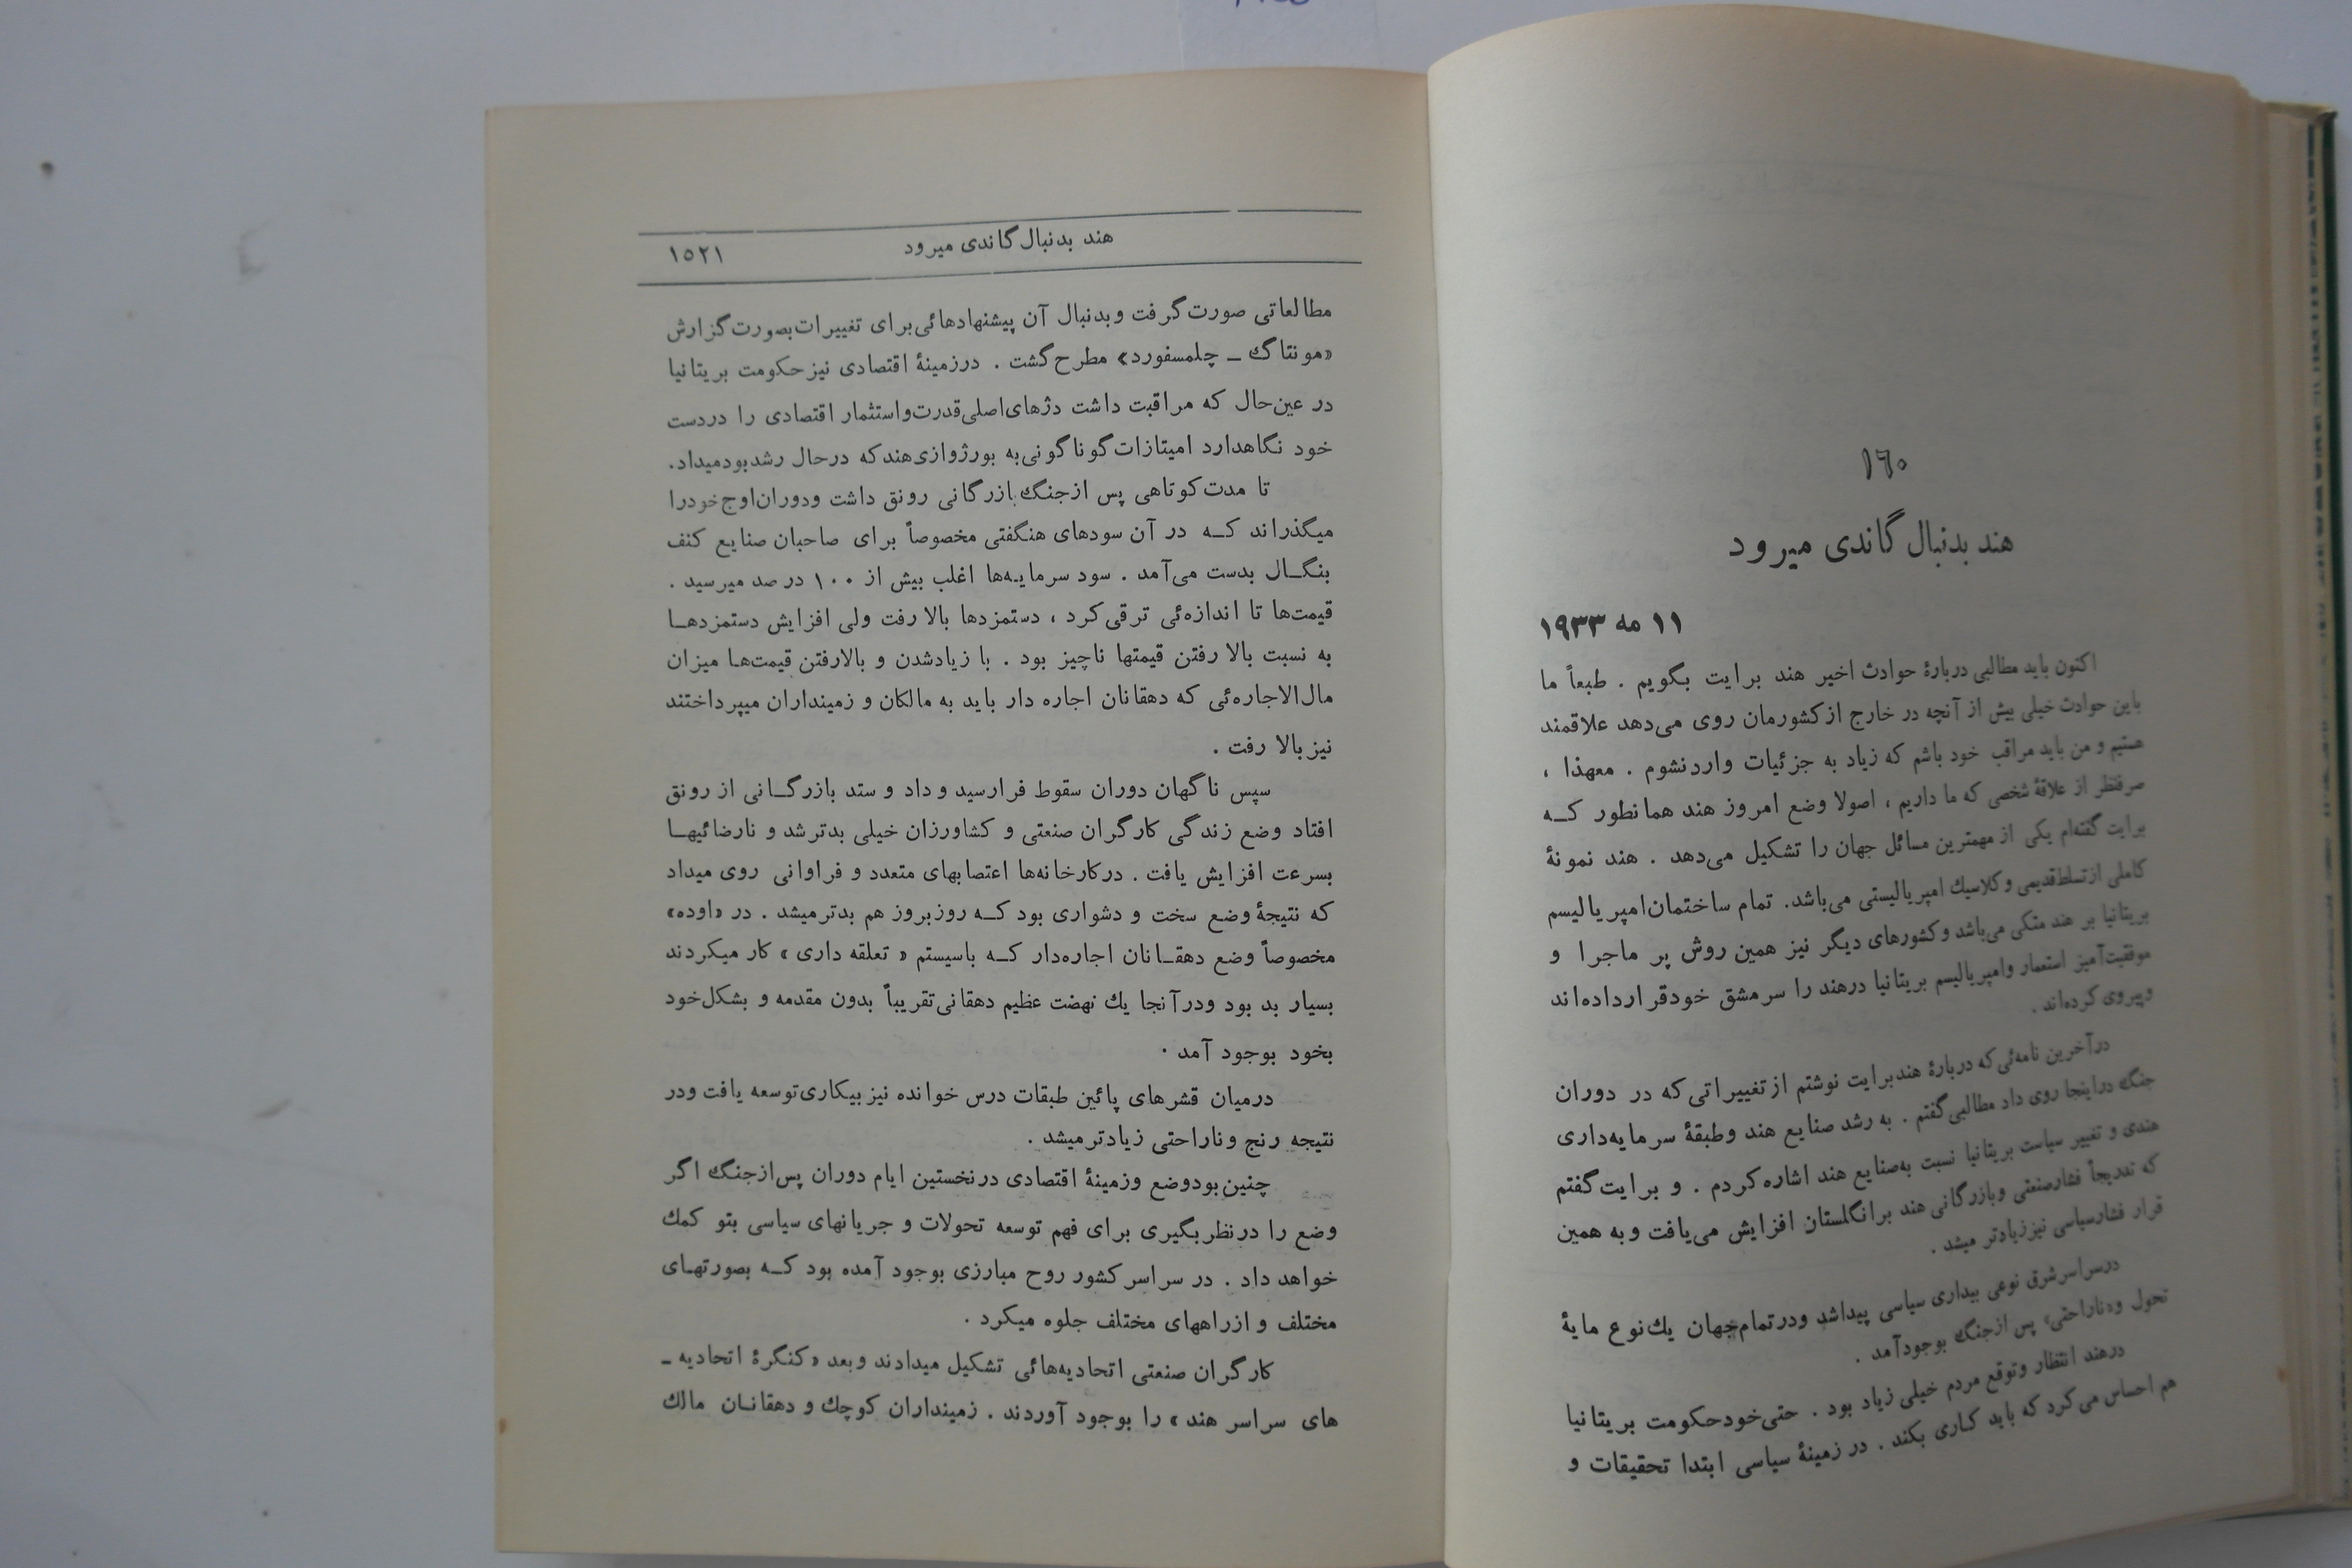 ۱٦۰
هند بدنبال گاندی میرود
۱۱ مه ۱۹۳۳
اکنون باید مطالبی دربارهٔ حوادث اخیر هند برایت بگویم . طبعاً ما
باین حوادث خیلی بیش از آنچه در خارج از کشورمان روی می‌دهد علاقمند
هستیم و من باید مراقب خود باشم که زیاد به جزئیات وارد نشوم . معهذا ،
صرفنظر از علاقهٔ شخصی که ما داریم ، اصولا وضع امروز هند همانطور کـه
برایت گفته‌ام یکی از مهمترین مسائل جهان را تشکیل می‌دهد . هند نمونهٔ
کاملی از تسلط قدیمی و کلاسیك امپریالیستی می‌باشد. تمام ساختمان امپریالیسم
بریتانیا بر هند متکی می‌باشد و کشورهای دیگر نیز همین روش پر ماجرا و
موفقیت‌آمیز استعمار وامپریالیسم بریتانیا درهند را سرمشق خود قرار داده‌اند
وپیروی کرده‌اند .
درآخرین نامه‌ئی که دربارهٔ هند برایت نوشتم از تغییراتی که در دوران
جنگ دراینجا روی داد مطالبی گفتم . به رشد صنایع هند وطبقهٔ سرمایه‌داری
هندی و تغییر سیاست بریتانیا نسبت به‌صنایع هند اشاره کردم . و برایت گفتم
که تدریجاً فشارصنعتی وبازرگانی هند برانگلستان افزایش می‌یافت و به همین
قرار فشارسیاسی نیز زیادتر میشد .
درسراسرشرق نوعی بیداری سیاسی پیداشد ودرتمام جهان یك نوع مایهٔ
تحول و«ناراحتی» پس ازجنگ بوجودآمد .
درهند انتظار وتوقع مردم خیلی زیاد بود . حتی خود حکومت بریتانیا
هم احساس می‌کرد که باید کاری بکند . در زمینهٔ سیاسی ابتدا تحقیقات و
هند بدنبال گاندی میرود ۱٥۲۱
مطالعاتی صورت گرفت و بدنبال آن پیشنهادهائی برای تغییرات بصورت گزارش
«مونتاگ ـ چلمسفورد» مطرح گشت . درزمینهٔ اقتصادی نیز حکومت بریتانیا
در عین‌حال که مراقبت داشت دژهای اصلی قدرت واستثمار اقتصادی را در دست
خود نگاهدارد امیتازات گوناگونی به بورژوازی هند که درحال رشد بود میداد.
تا مدت کوتاهی پس از جنگ بازرگانی رونق داشت و دوران اوج خود را
میگذراند کـه در آن سودهای هنگفتی مخصوصاً برای صاحبان صنایع کنف
بنگـال بدست می‌آمد . سود سرمایـه‌ها اغلب بیش از ۱۰۰ در صد میرسید .
قیمت‌ها تا اندازه‌ئی ترقی کرد ، دستمزدها بالا رفت ولی افزایش دستمزدهـا
به نسبت بالا رفتن قیمتها ناچیز بود . با زیاد شدن و بالارفتن قیمت‌هـا میزان
مال‌الاجاره‌ئی که دهقانان اجاره دار باید به مالکان و زمینداران میپرداختند
نیز بالا رفت .
سپس ناگهان دوران سقوط فرارسید و داد و ستد بازرگـانی از رونق
افتاد وضع زندگی کارگران صنعتی و کشاورزان خیلی بدتر شد و نارضائیهـا
بسرعت افزایش یافت . درکارخانه‌ها اعتصابهای متعدد و فراوانی روی میداد
که نتیجهٔ وضع سخت و دشواری بود کـه روزبروز هم بدتر میشد . در «اوده»
مخصوصاً وضع دهقـانان اجاره‌دار کـه باسیستم « تعلقه داری » کار میکردند
بسیار بد بود ودرآنجا یك نهضت عظیم دهقانی تقریباً بدون مقدمه و بشکل خود
بخود بوجود آمد .
درمیان قشرهای پائین طبقات درس خوانده نیز بیکاری توسعه یافت ودر
نتیجه رنج و ناراحتی زیادتر میشد .
چنین بود وضع وزمینهٔ اقتصادی درنخستین ایام دوران پس از جنگ اگر
وضع را در نظر بگیری برای فهم توسعه تحولات و جریانهای سیاسی بتو کمك
خواهد داد . در سراسر کشور روح مبارزی بوجود آمده بود کـه بصورتهـای
مختلف و ازراههای مختلف جلوه میکرد .
کارگران صنعتی اتحادیه‌هائی تشکیل میدادند و بعد « کنگرهٔ اتحادیه ـ
های سراسر هند » را بوجود آوردند . زمینداران کوچك و دهقانـان مالك